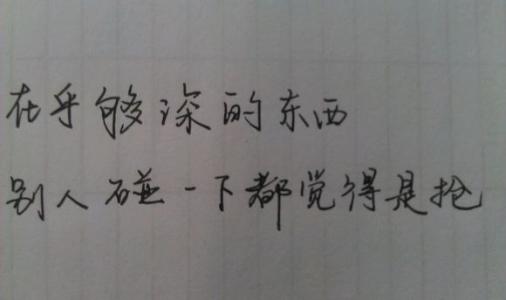 在乎够深的东西
别人碰一下都觉得是抢